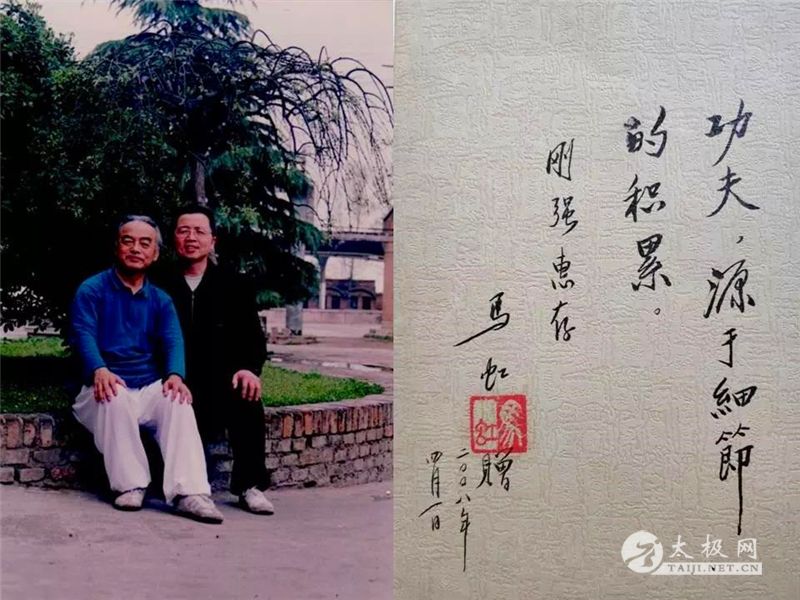 功夫，源于細節
的积累。
刚强惠存
馬虹
贈
二〇〇八年
四月一日
太极网
TAIJI.NET.CN